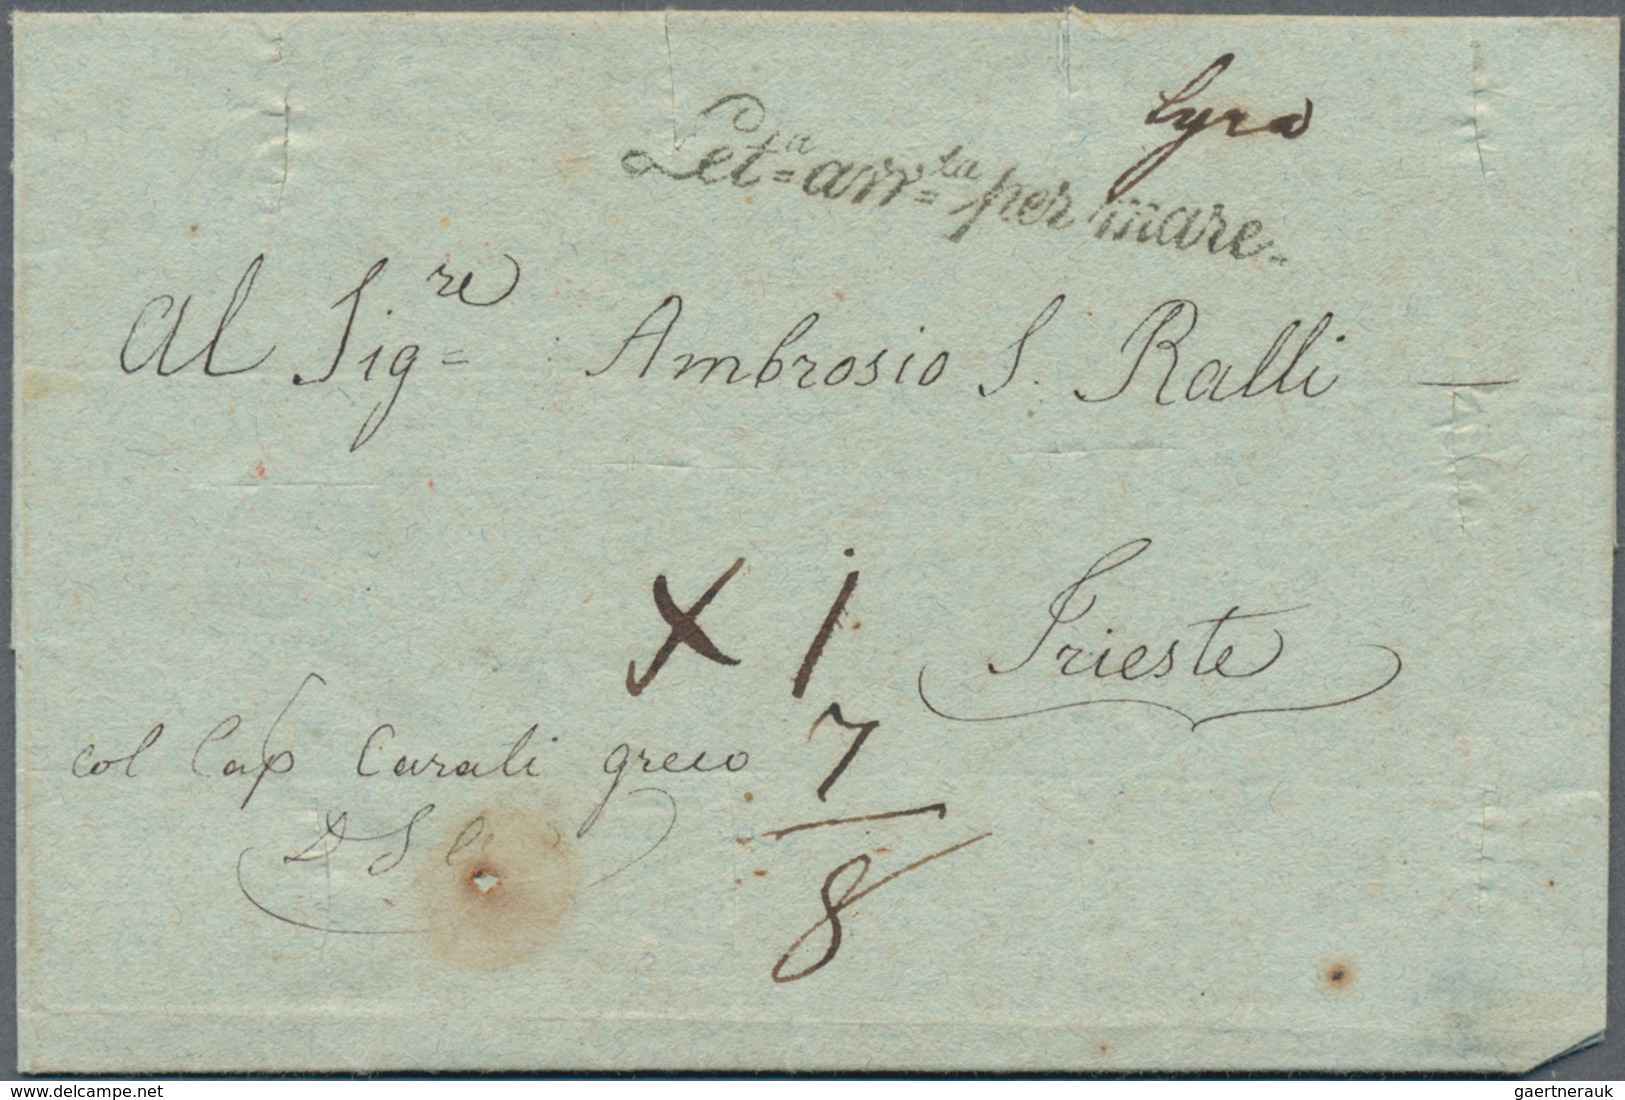 Syra
Let.a = arr.ta = per mare.
Al Sig.re = Ambrosio S. Ralli —
X 1
Trieste
col Cap Carali greco 7
D S
8
© Delcampe.net
gaertnerauk